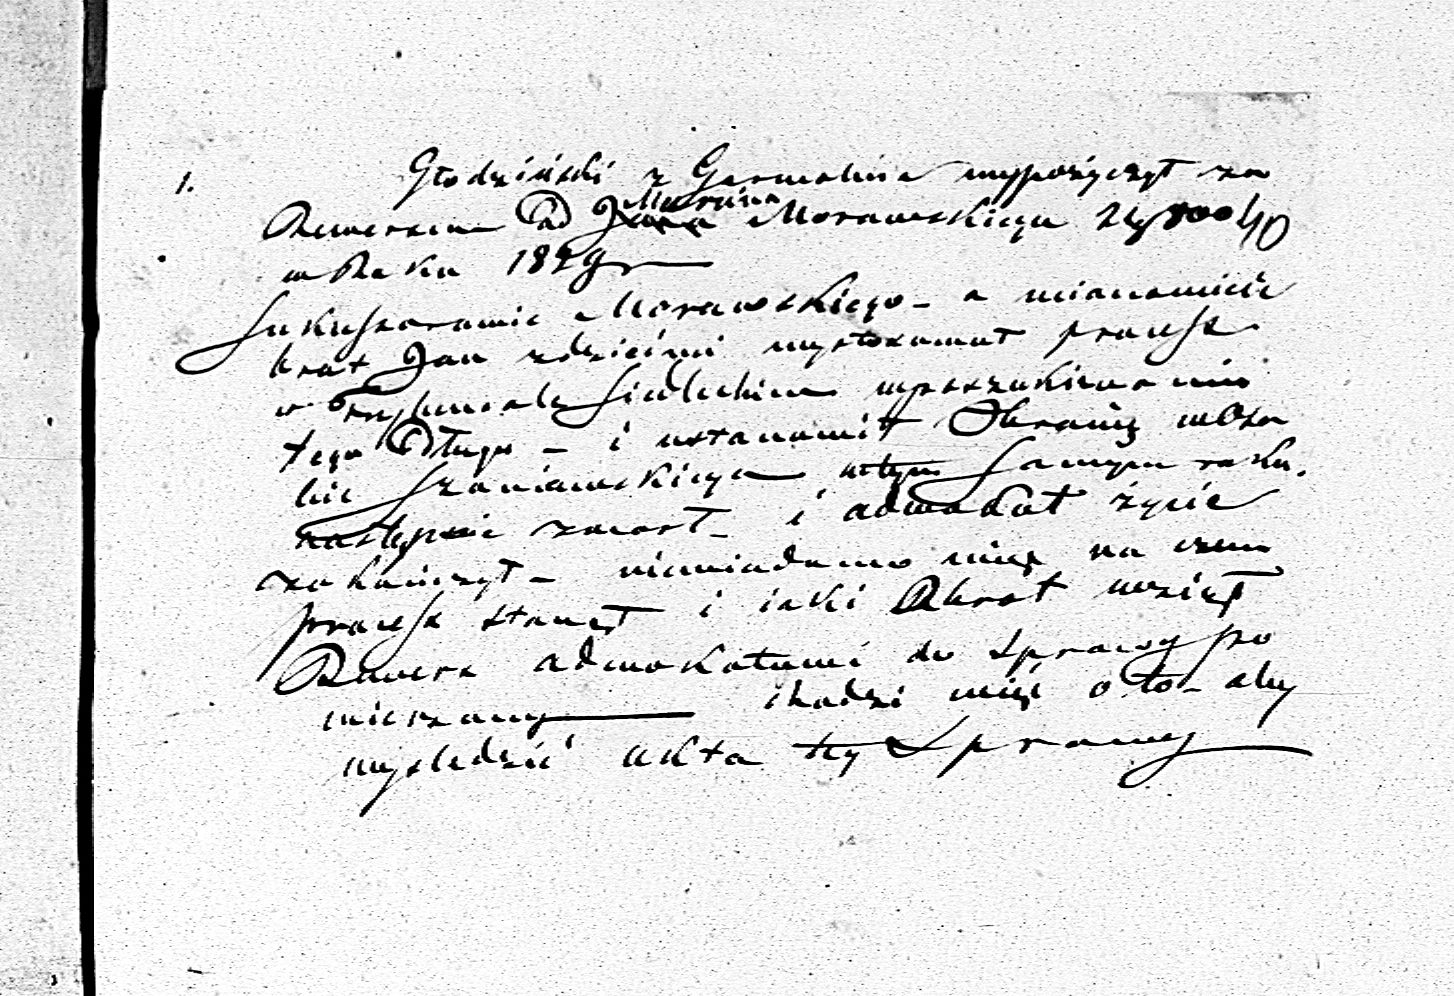 1. Głodziński z Garwolina wypożyczył za
Rewersem Od Jana Marcina Morawskiego
w Roku 1829 r
Sukcessorowie Morawskiego - a mianowicie
brat Jan z dziećmi wystosował process
w Trybunale Siedleckim w poszukiwaniu
tego Długu - i ustanowił Obrońcę w Oso
bie Szaniawskiego w tym samym roku.
następnie zmarł - i adwokat życie
zakończył - niewiadomo mię na czem
process stanął i jaki Obrót wziął
Rewers adwokatowi do Sprawy po
wierzony chodzi mię o to - aby
wyśledzić akta tey Sprawy